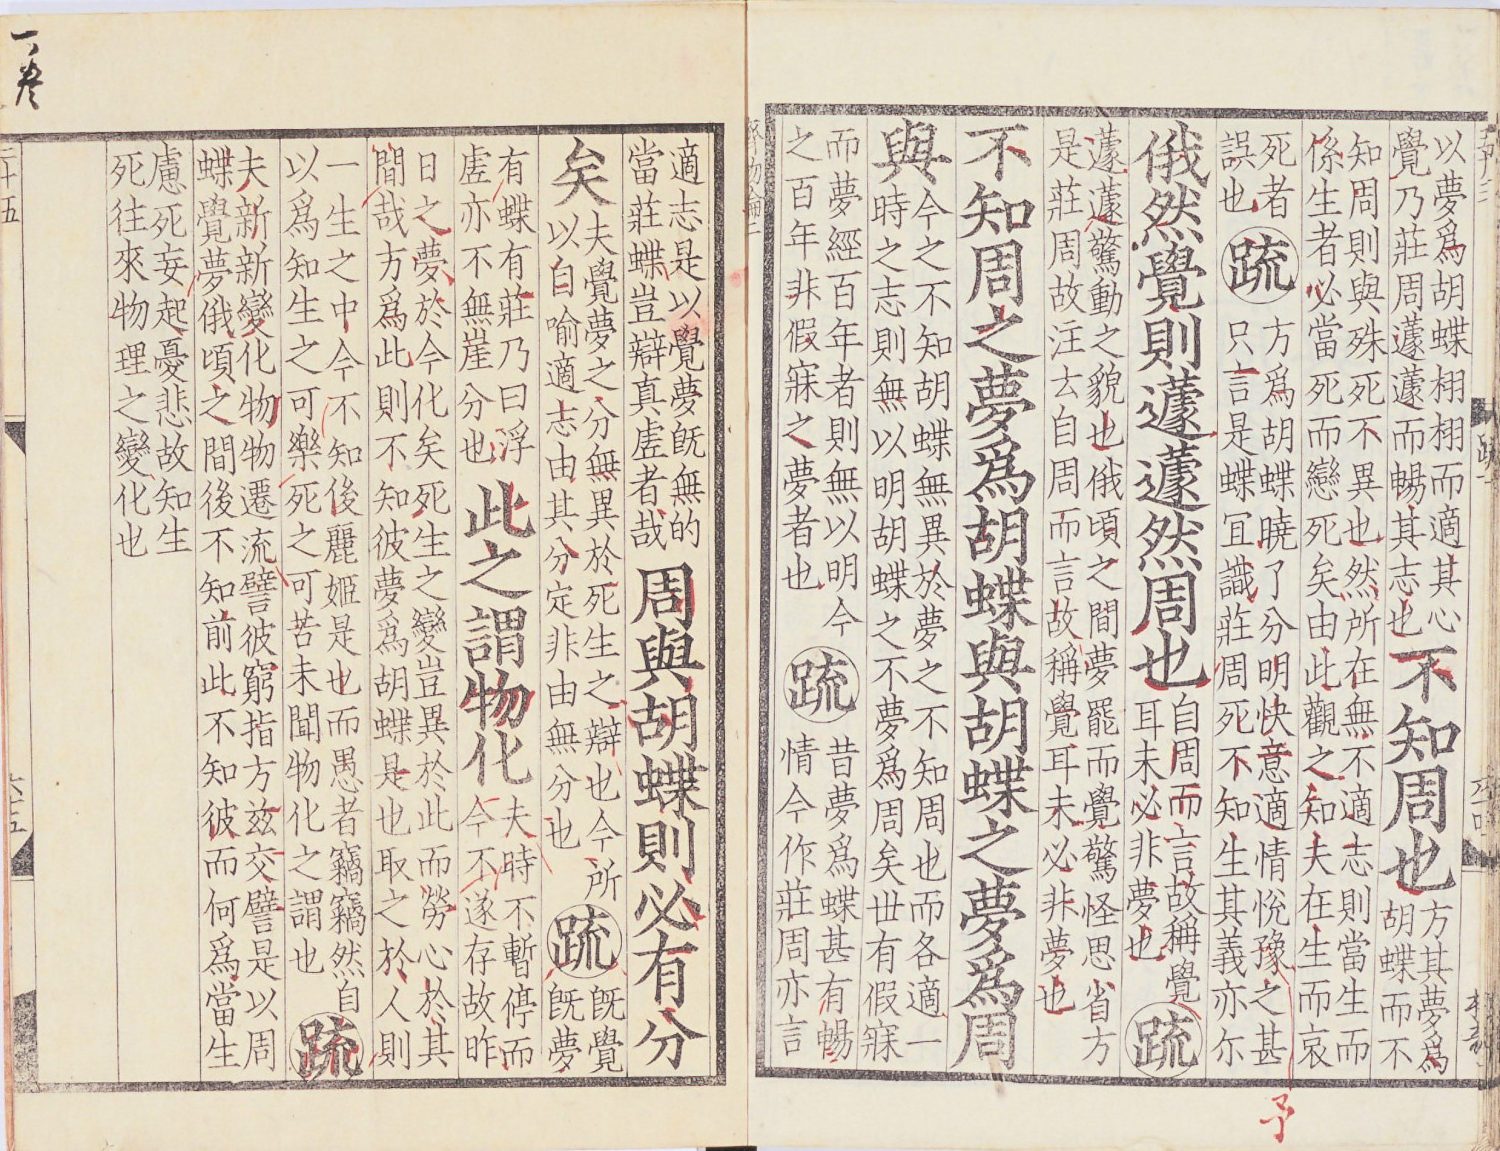 以夢爲胡蝶栩栩而適其心
覺乃莊周蘧蘧而暢其志也
不知周也
方其夢爲
胡蝶而不
知周則與殊死不異也然所在無不適志則當生而
係生者必當死而戀死矣由此觀之知夫在生而哀
死者
誤也
疏
方爲胡蝶曉了分明快意適情悅豫之甚
只言是蝶宜識莊周死不知生其義亦尓
俄然覺則蘧蘧然周也
自周而言故稱覺
耳未必非夢也
疏
蘧蘧驚動之貌也俄頃之間夢罷而覺驚怪思省方
是莊周故注云自周而言故稱覺耳未必非夢也
不知周之夢爲胡蝶與胡蝶之夢爲周
與
今之不知胡蝶無異於夢之不知周也而各適一
時之志則無以明胡蝶之不夢爲周矣世有假寐
而夢經百年者則無以明今
之百年非假寐之夢者也
疏
昔夢爲蝶甚有暢
情今作莊周亦言
予
適志是以覺夢旣無的
當莊蝶豈辯真虗者哉
周與胡蝶則必有分
矣
夫覺夢之分無異於死生之辯也今所
以自喻適志由其分定非由無分也
疏
旣覺
旣夢
有蝶有莊乃曰浮
虗亦不無崖分也
此之謂物化
夫時不暫停而
今不遂存故昨
日之夢於今化矣死生之變豈異於此而勞心於其
間哉方爲此則不知彼夢爲胡蝶是也取之於人則
一生之中今不知後麗姬是也而愚者竊竊然自
以爲知生之可樂死之可苦未聞物化之謂也
疏
夫新新變化物物遷流譬彼窮指方茲交臂是以周
蝶覺夢俄頃之間後不知前此不知彼而何爲當生
慮死妄起憂悲故知生
死往來物理之變化也
一卷